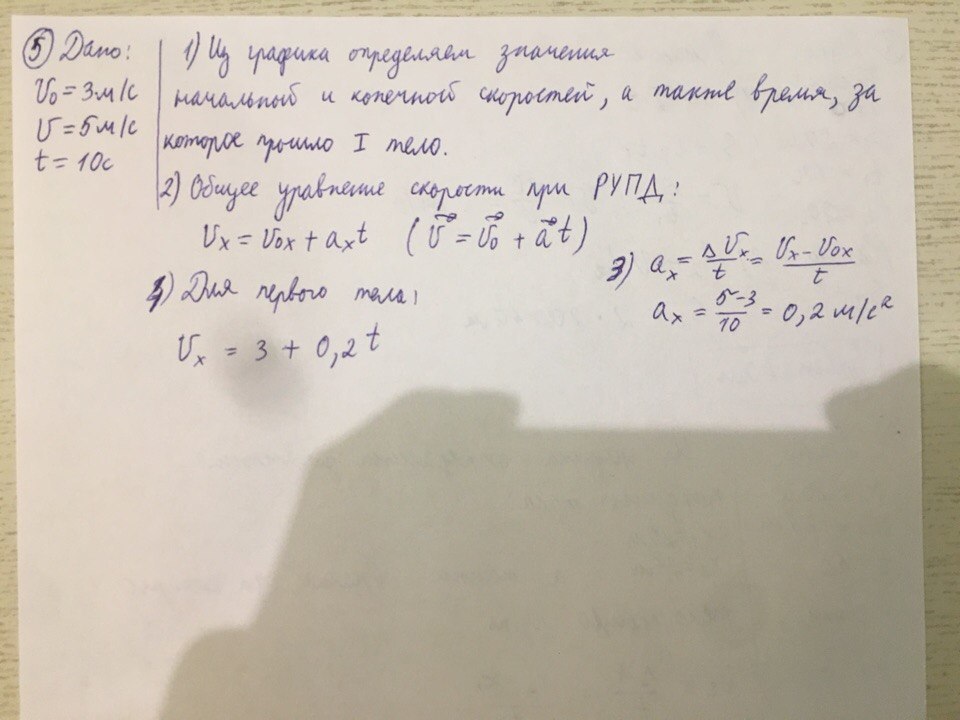 5 Дано:
V₀ = 3м/с
V = 5м/с
t = 10с
1) Из графика определяем значения
начальной и конечной скоростей, а также время, за
которое прошло I тело.
2) Общее уравнение скорости при РУПД:
Vₓ = V₀ₓ + aₓt (V⃗ = V⃗₀ + a⃗t)
3) aₓ = ΔVₓ/t = (Vₓ - V₀ₓ)/t
aₓ = (5-3)/10 = 0,2 м/с²
4) Для первого тела:
Vₓ = 3 + 0,2t